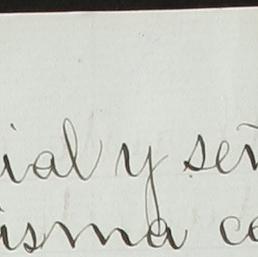 ial y señ
isma ce